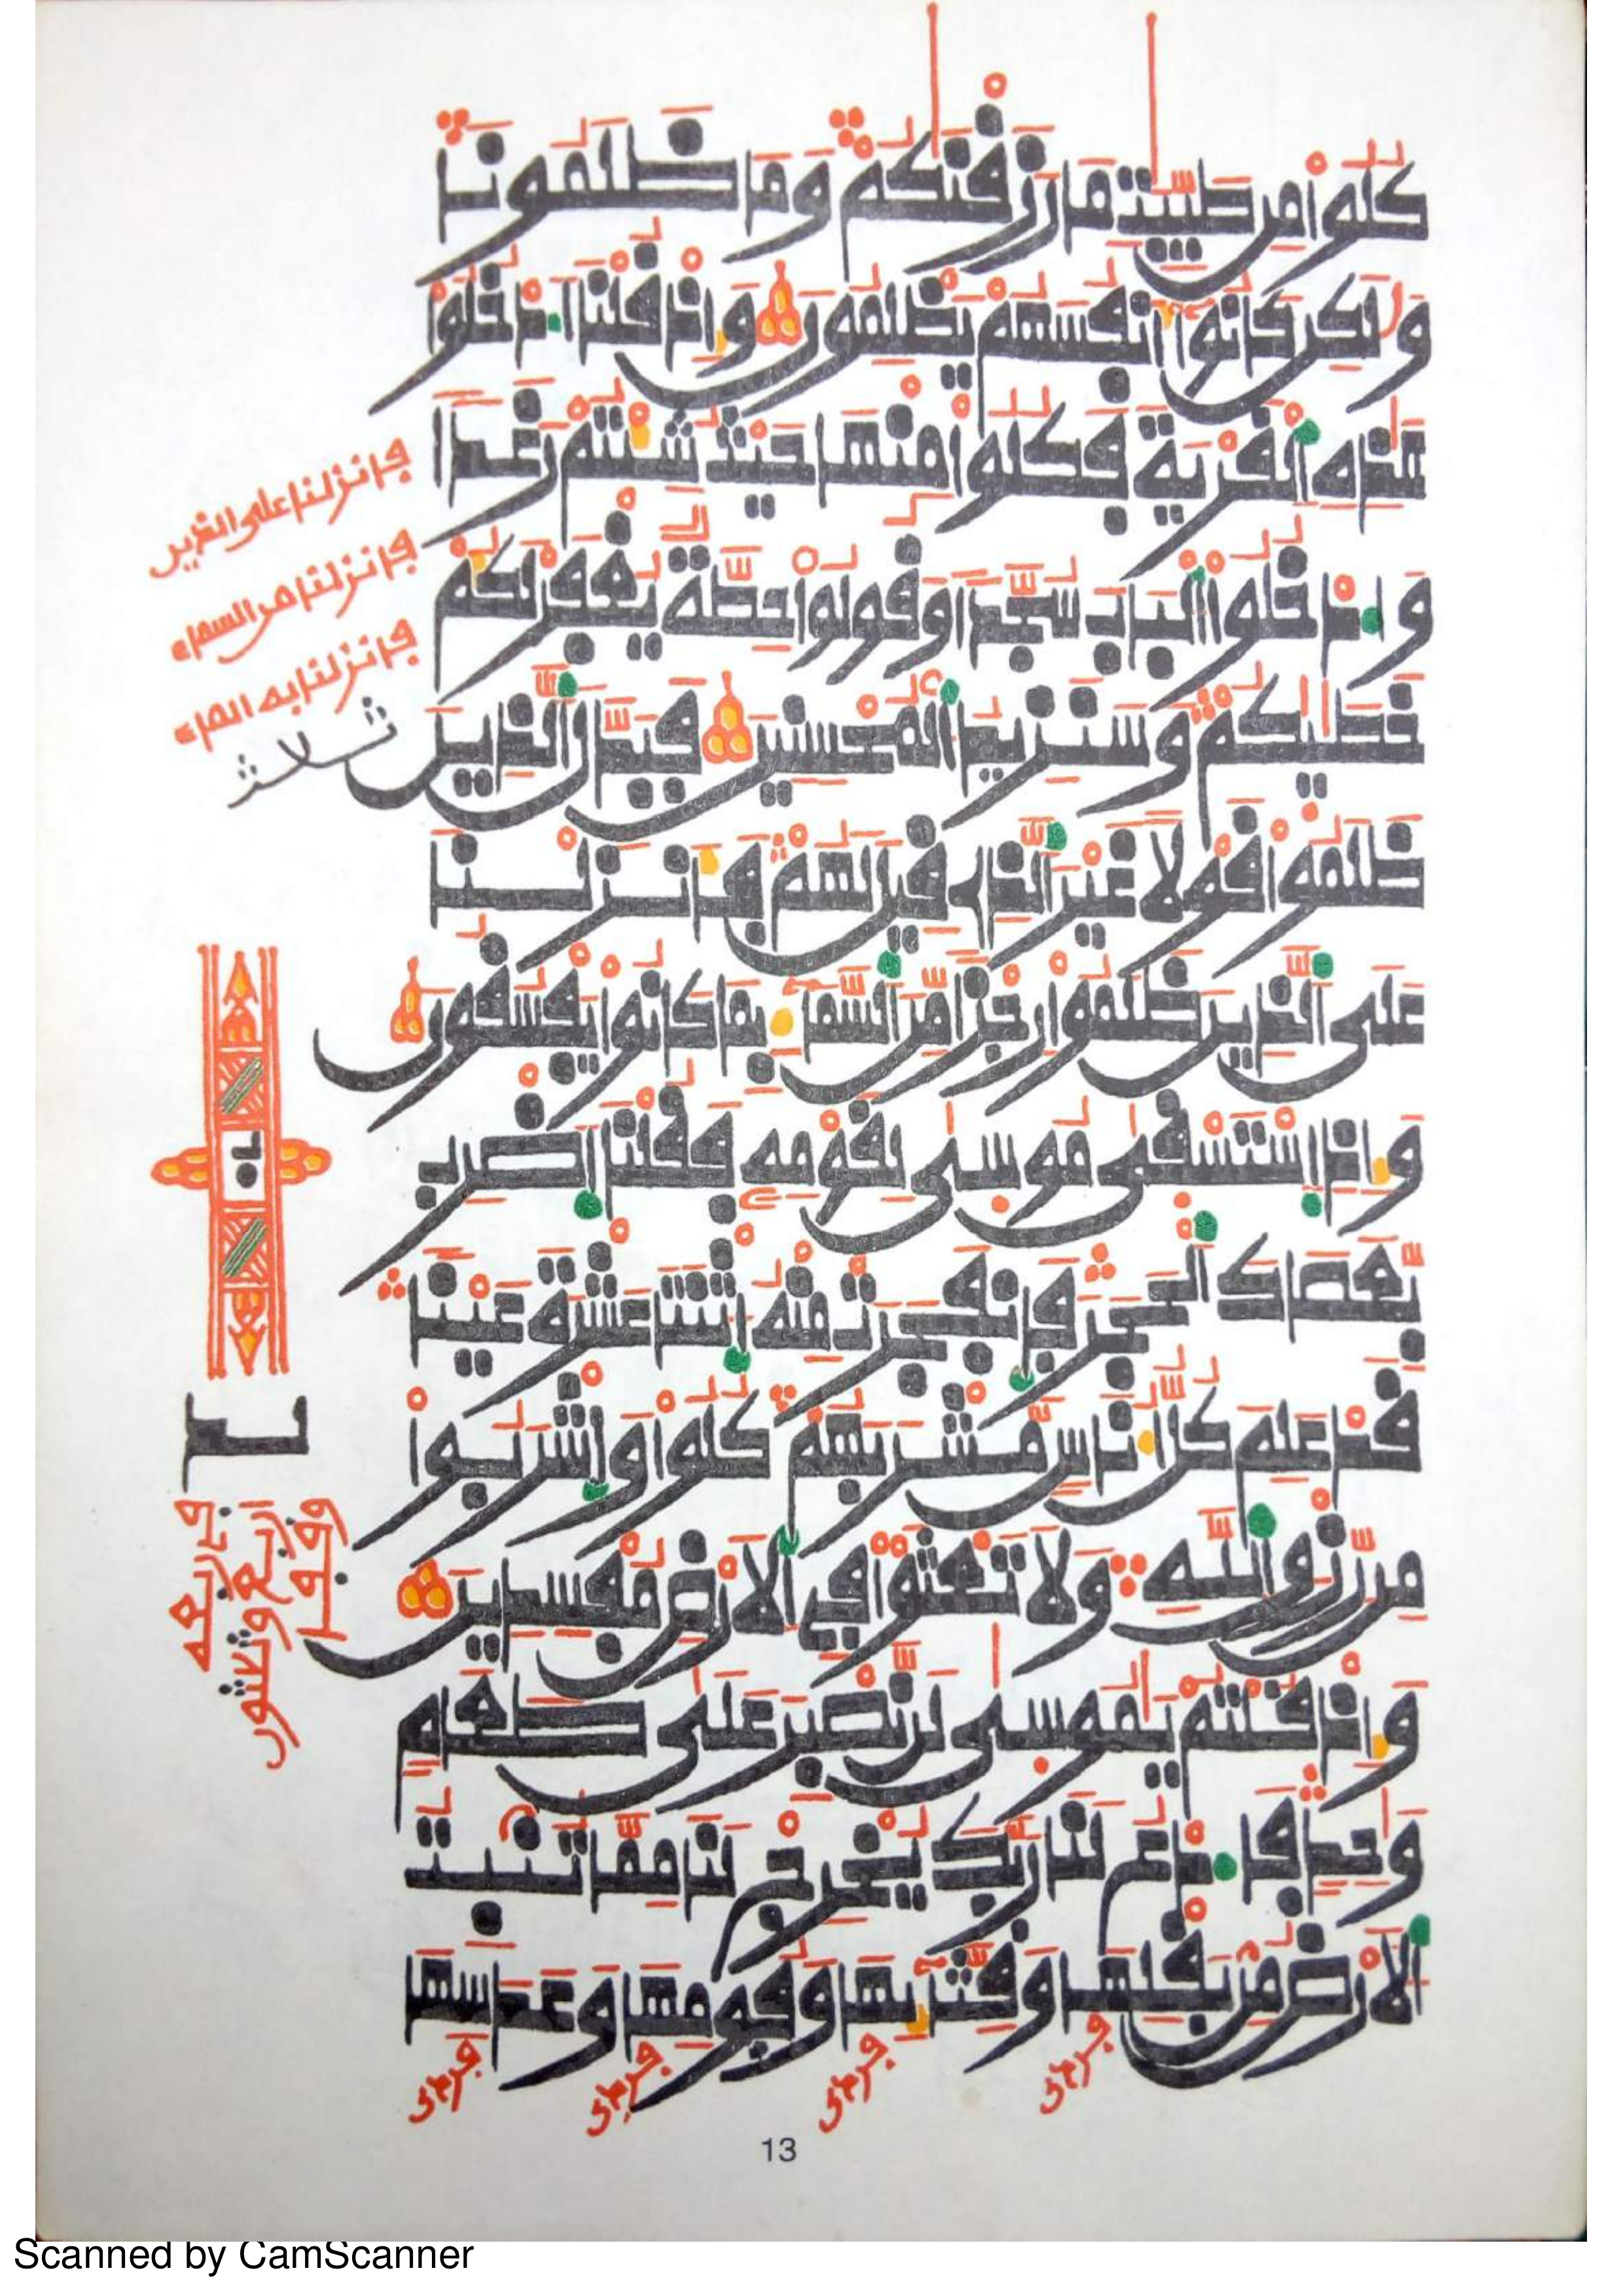 كلوا من طيبت ما رزقنكم وما ظلمونا
ولكن كانوا أنفسهم يظلمون وإذ قلنا ادخلوا
هذه القرية فكلوا منها حيث شئتم رغدا
وادخلوا الباب سجدا وقولوا حطة يغفر لكم
خطيكم وسنزيد المحسنين فبدل الذين
ظلموا قولا غير الذي قيل لهم فأنزلنا
على الذين ظلموا رجزا من السماء بما كانوا يفسقون
وإذ استسقى موسى لقومه فقلنا اضرب
بعصاك الحجر فانفجرت منه اثنتا عشرة عينا
قد علم كل أناس مشربهم كلوا واشربوا
من رزق الله ولا تعثوا في الارض مفسدين
وإذ قلتم يموسى لن نصبر على طعام
وحد فادع لنا ربك يخرج لنا مما تنبت
الارض من بقلها وقثائها وفومها وعدسها
فأنزلنا على الذين
فأنزلنا من السماء
فأنزلنا به الماء
ثلاث
13
Scanned by CamScanner